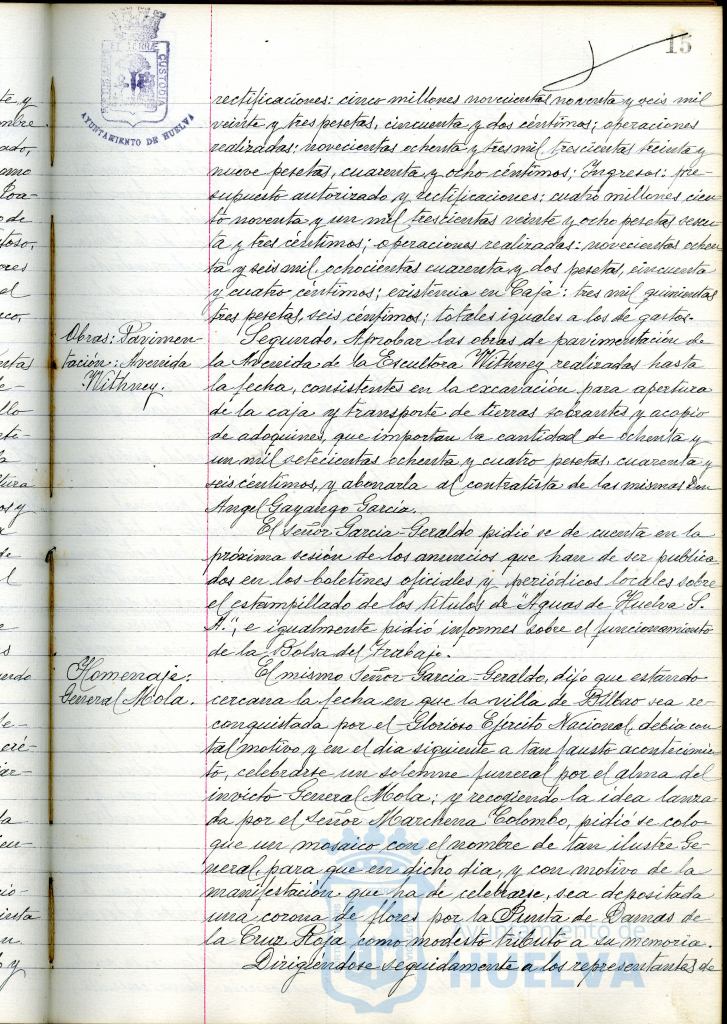 15
CUSTODIA
AYUNTAMIENTO DE HUELVA
rectificaciones: cinco millones novecientas noventa y seis mil
veinte y tres pesetas, cincuenta y dos céntimos; operaciones
realizadas: novecientas ochenta y tres mil trescientas treinta y
nueve pesetas, cuarenta y ocho céntimos; Ingresos: pre-
supuesto autorizado y rectificaciones: cuatro millones cien-
to noventa y un mil trescientas veinte y ocho pesetas sesen-
ta y tres céntimos; operaciones realizadas: novecientas ochen-
ta y seis mil, ochocientas cuarenta y dos pesetas, cincuenta
y cuatro céntimos; existencia en Caja: tres mil quinientas
tres pesetas, seis céntimos; totales iguales a los de gastos.
Obras: Pavimen-
tación: Avenida
Withney.
Segundo. Aprobar las obras de pavimentación de
la Avenida de la Escultora Withney realizadas hasta
la fecha, consistentes en la excavación para apertura
de la caja y transporte de tierras sobrantes y acopio
de adoquines, que importan la cantidad de ochenta y
un mil setecientas ochenta y cuatro pesetas, cuarenta y
seis céntimos, y abonarla al contratista de las mismas Don
Angel Gayango García.
El señor García-Geraldo pidió se de cuenta en la
próxima sesión de los anuncios que han de ser publica-
dos en los boletines oficiales y periódicos locales sobre
el estampillado de los títulos de "Aguas de Huelva S.
A.", e igualmente pidió informes sobre el funcionamiento
de la Bolsa del Trabajo.
Homenaje:
General Mola.
El mismo señor García-Geraldo, dijo que estando
cercana la fecha en que la villa de Bilbao sea re-
conquistada por el Glorioso Ejército Nacional, debía con
tal motivo y en el día siguiente a tan fausto acontecimien-
to, celebrarse un solemne funeral por el alma del
invicto General Mola; y recogiendo la idea lanza-
da por el señor Marchena Colombo, pidió se colo-
que un mosaico con el nombre de tan ilustre Ge-
neral, para que en dicho día, y con motivo de la
manifestación que ha de celebrarse, sea depositada
una corona de flores por la Junta de Damas de
la Cruz Roja como modesto tributo a su memoria.
Dirigiéndose seguidamente a los representantes de
Ayuntamiento de
HUELVA